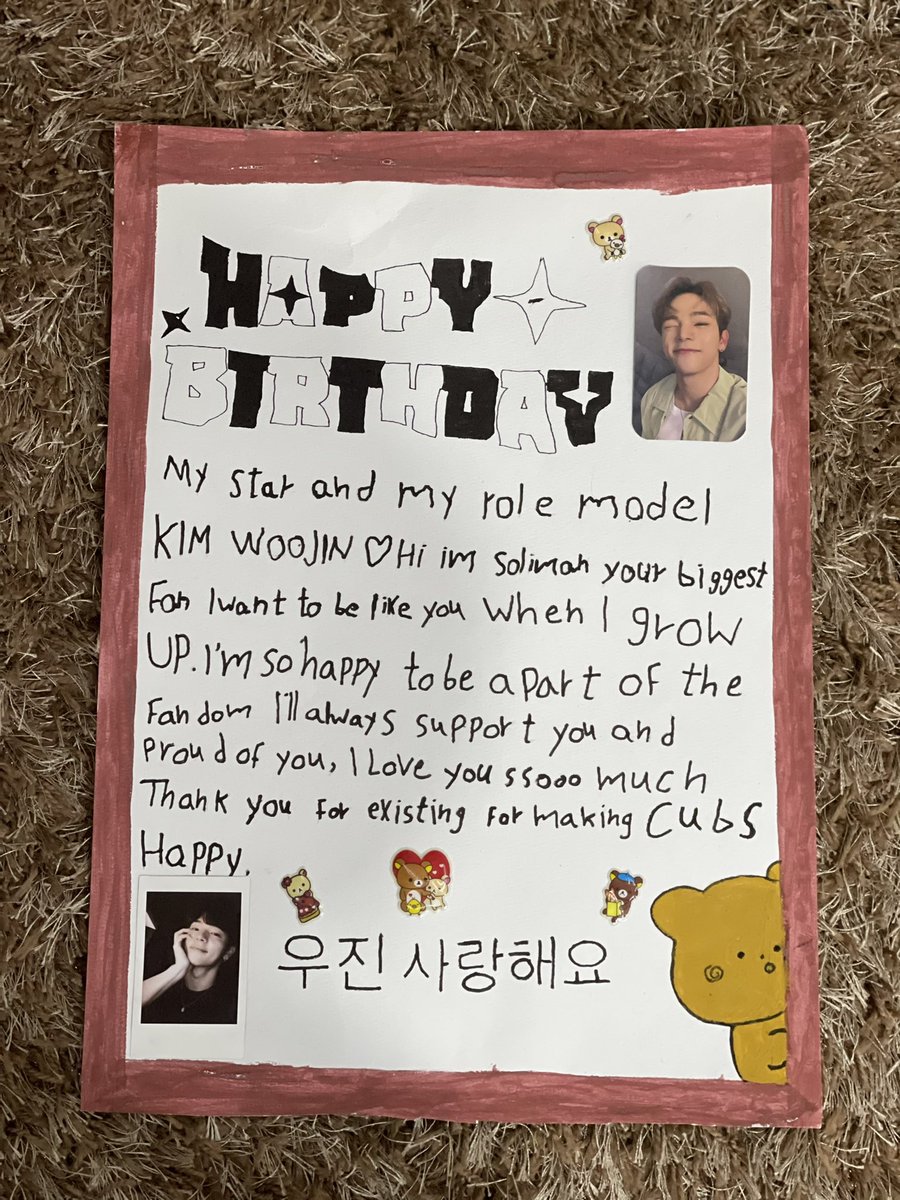 HAPPY
BIRTHDAY
My star and my role model
KIM WOOJIN ♡ Hi im Solimah your biggest
Fan I want to be like you when I grow
UP. I'm so happy to be a part of the
Fandom I'll always support you and
Proud of you, I Love you ssooo much
Thank you for existing for making Cubs
Happy.
우진 사랑해요